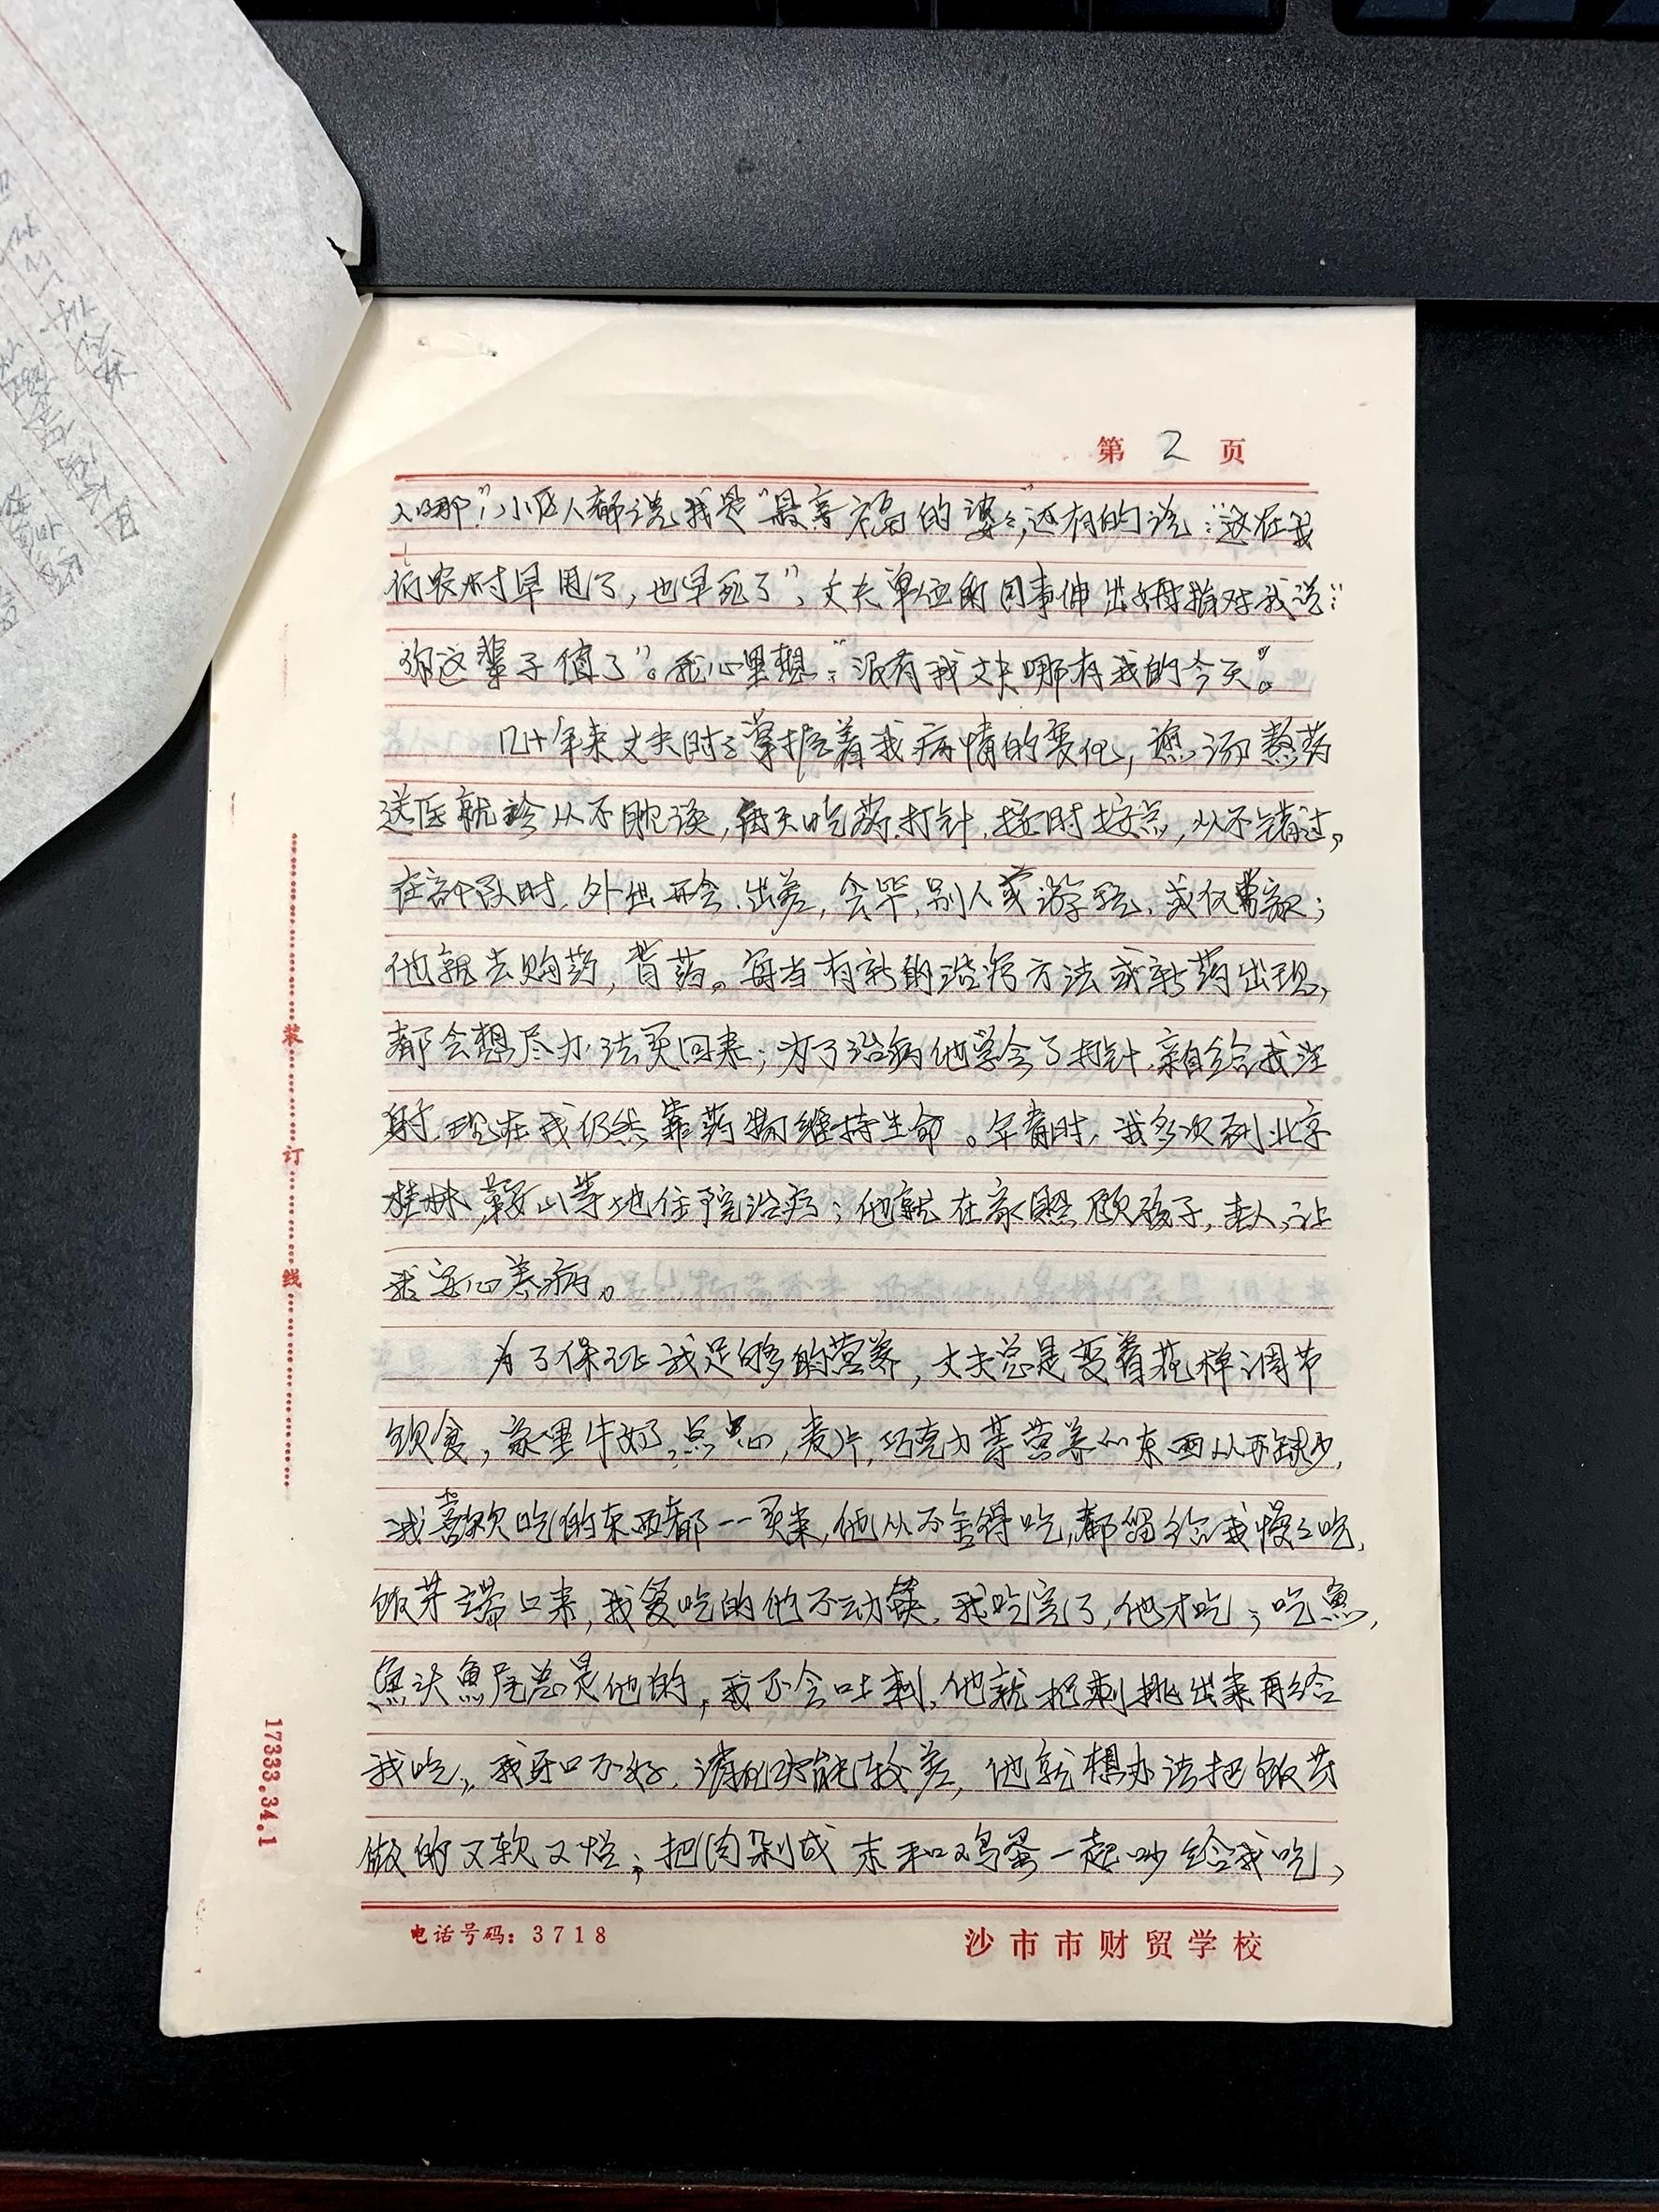 第 2 页
人哪？”小区人都说我是“最幸福的婆々”，还有的说：“这在我
们农村早甩了，也早死了”，丈夫单位的同事伸出姆指对我说：“
你这辈子值了”。我心里想：“没有我丈夫哪有我的今天”。
几十年来丈夫时々掌握着我病情的变化，药
送医就诊从不耽误，每天吃药、打针，按时按点，从不错过。
在部队时，外出开会、出差，会毕，别人或游玩，或仅带款；
他就去购药，背药。每当有新的治疗方法或新药出现，
都会想尽办法买回来；为了治病他学会了打针，亲自给我注
射，现在我仍然靠药物维持生命。年青时，我多次到北京
桂林、鞍山等地住院治疗；他就在家照顾孩子，老人，让
我安心养病。
为了保证我足够的营养，丈夫总是变着花样调节
饮食，家里牛奶，点心，麦片，巧克力等营养的东西从不缺少，
我喜欢吃的东西都一一买来，他从不舍得吃，都留给我慢々吃，
饭菜端上来，我爱吃的他不动筷，我吃完了，他才吃；吃鱼，
鱼头鱼尾总是他的，我不会吐刺，他就把刺挑出来再给
我吃，我牙口不好，消化功能较差，他就想办法把饭菜
做的又软又烂；把肉剁成末和鸡蛋一起炒给我吃，
装订线
17333.34.1
电话号码：3718
沙市市财贸学校